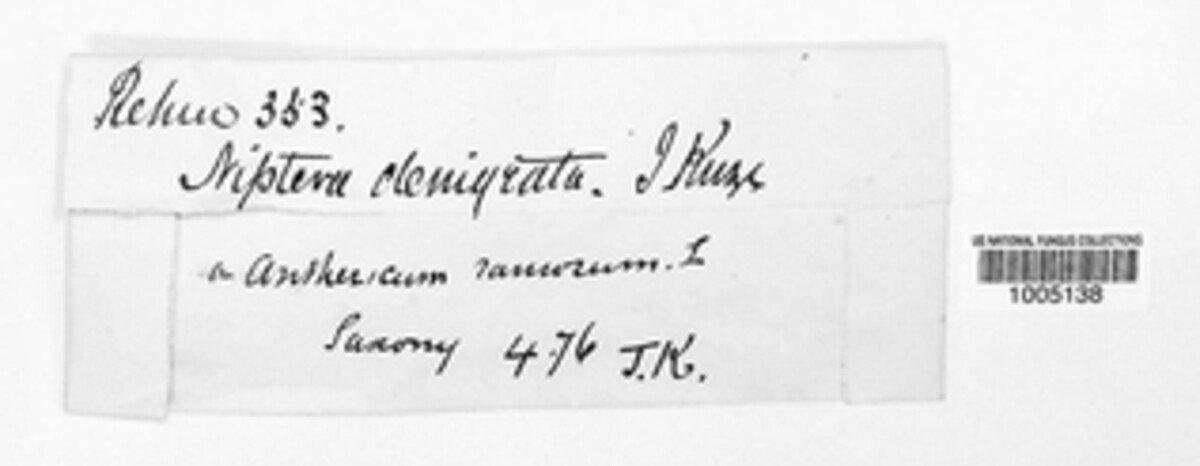 Rehm 353.
Niptera denigrata. J Kunze
on Anthericum ramosum. L
Saxony 4.76 J.K.
US NATIONAL FUNGUS COLLECTIONS
1005138